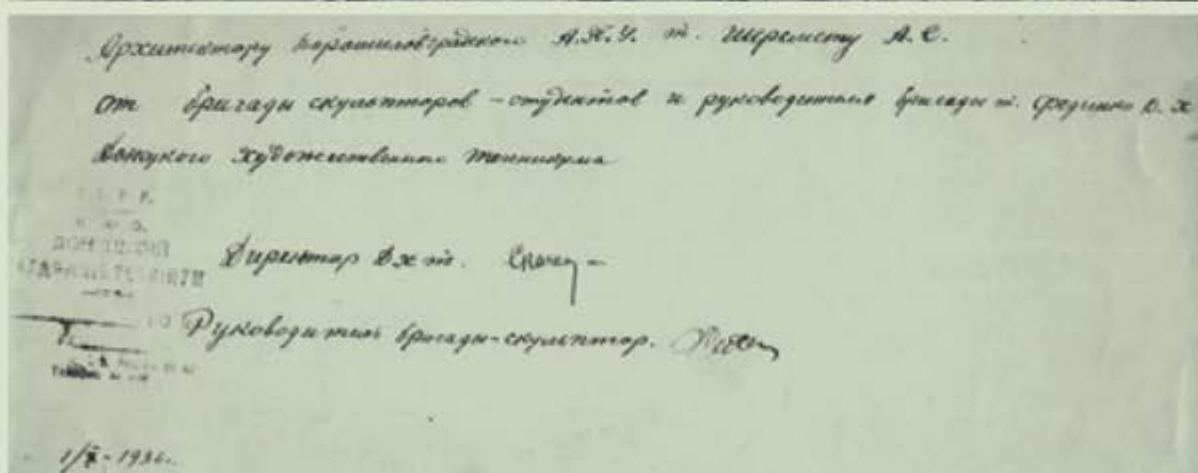 Архитектору Ворошиловградского А.П.У. т. Шеремету А.С.
от бригады скульпторов-студентов и руководителя бригады т. Федченко В. Х
Донецкого художественного техникума
ДОНЕЦКИЙ
Директор Дхт.
Руководитель бригады-скульптор.
1/X-1936.